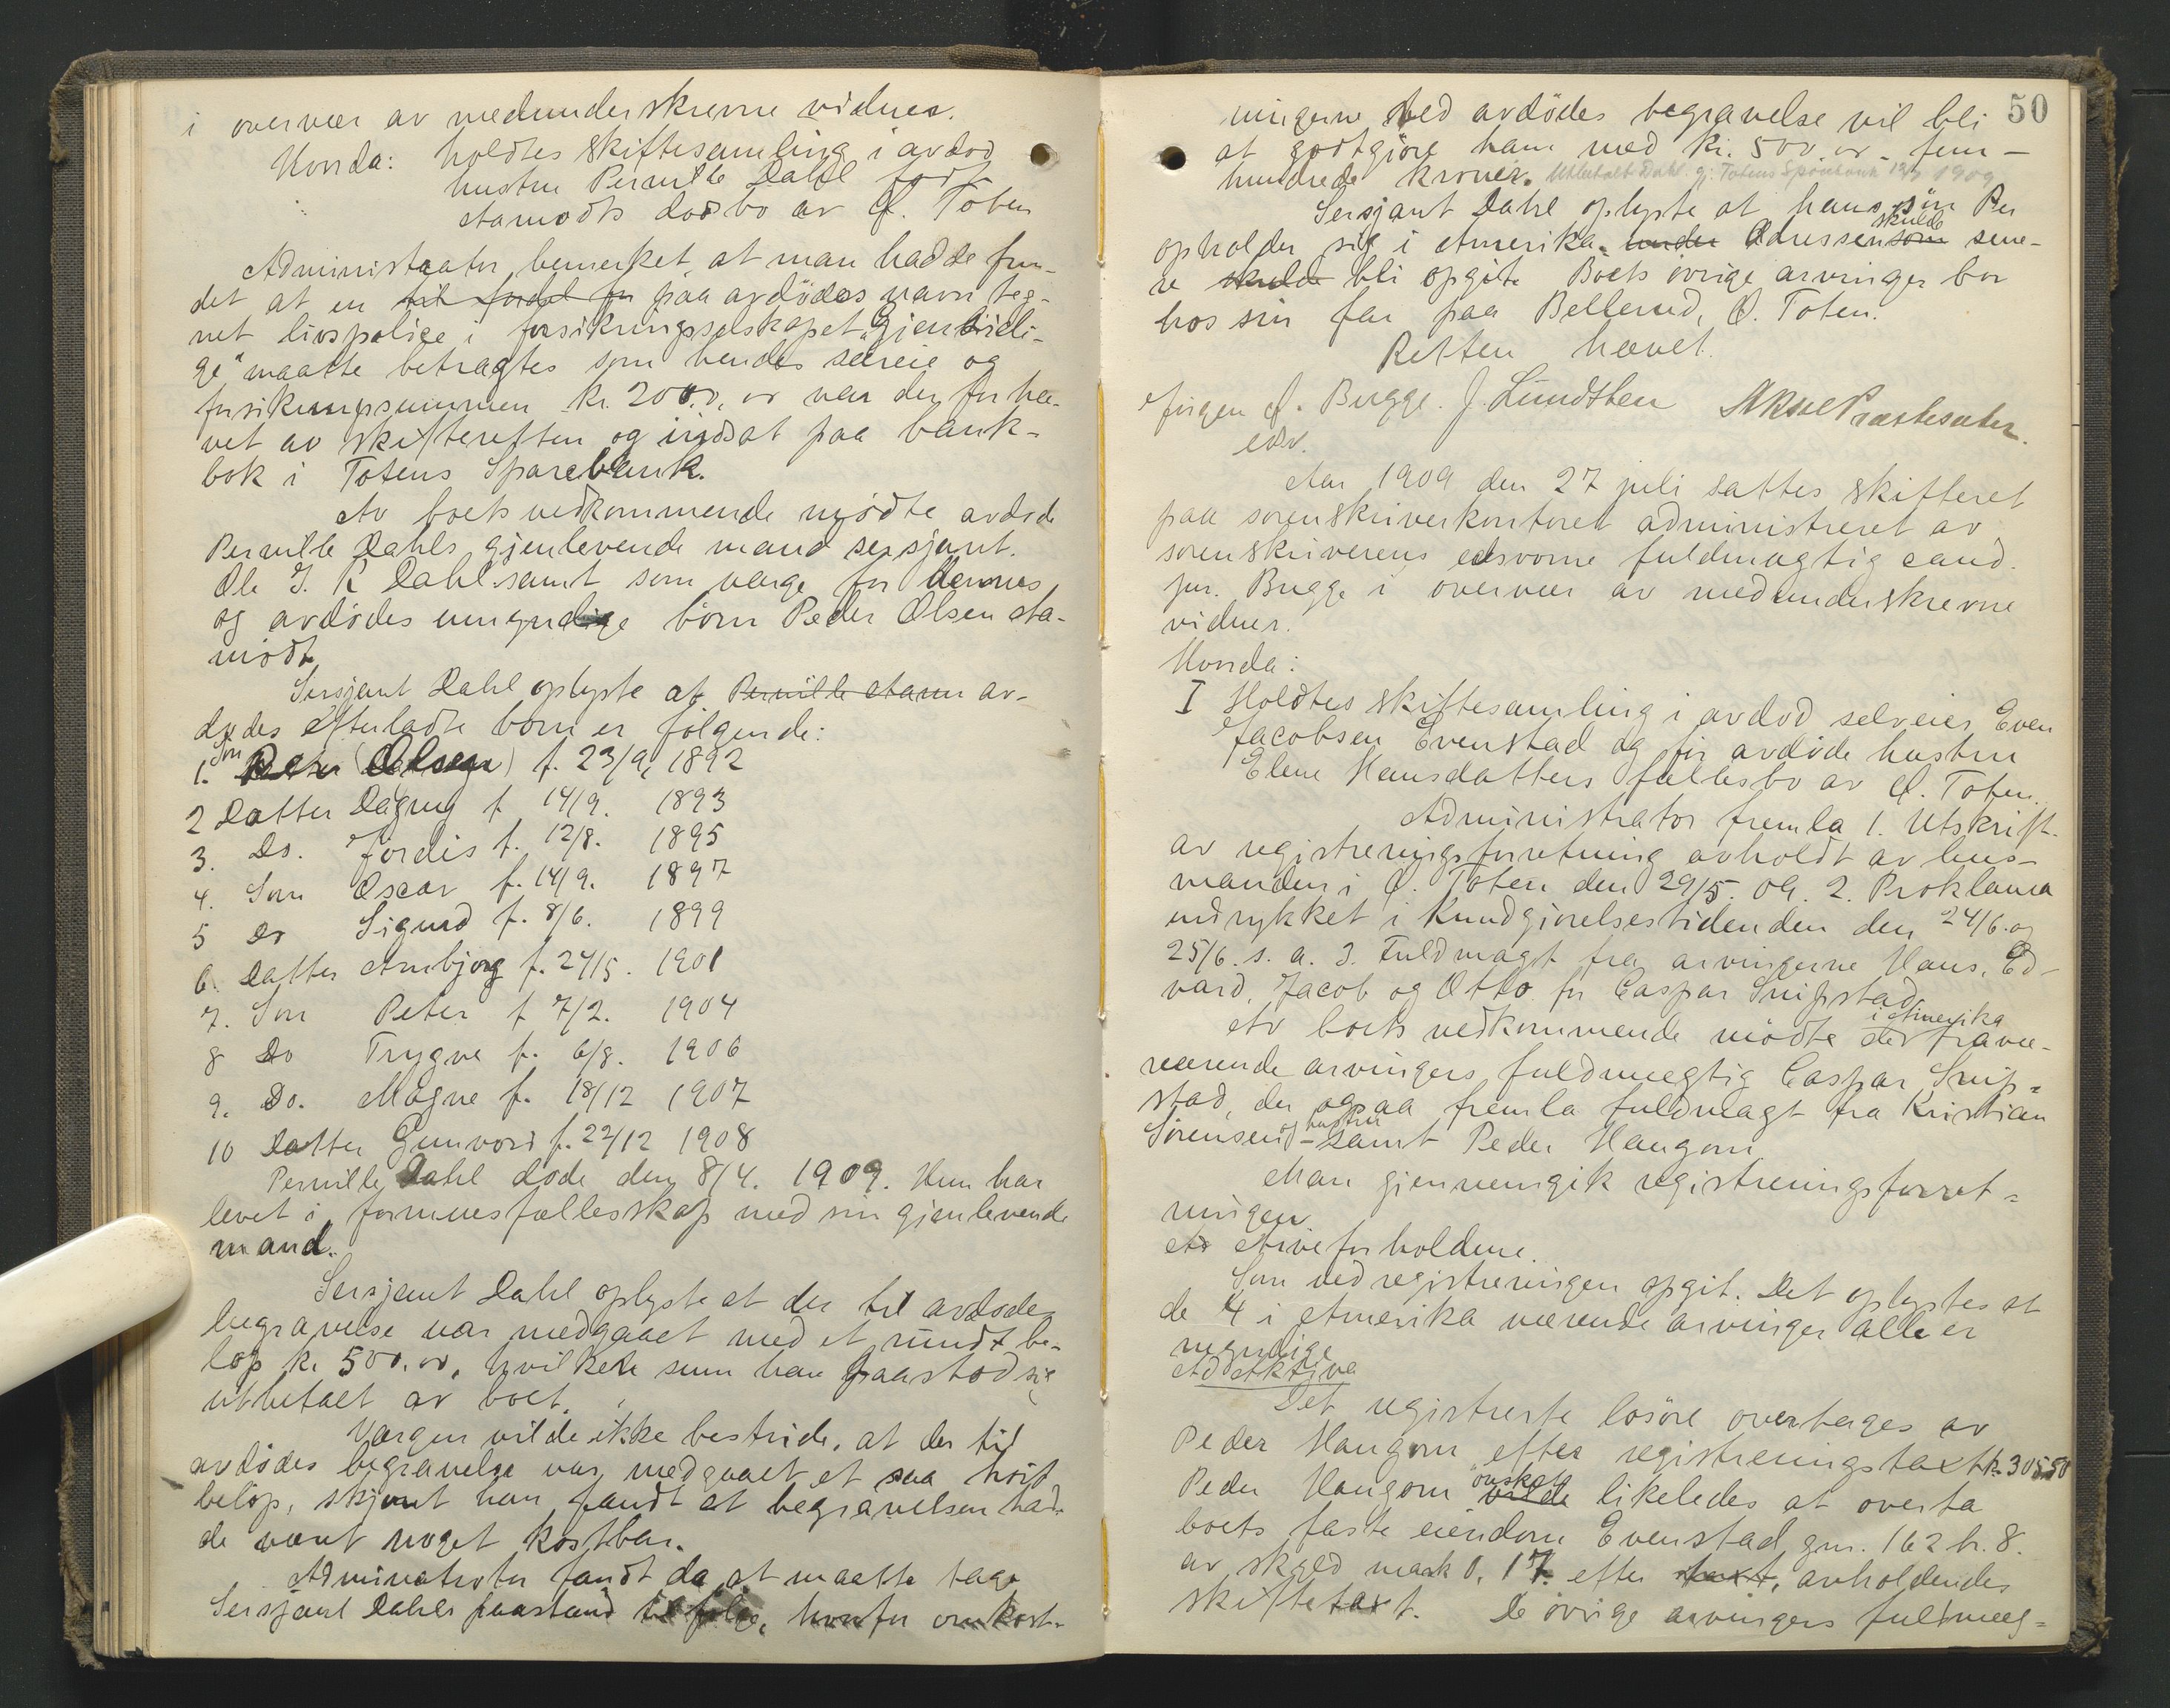 i overvær av medunderskrevne vidner.
Hvorda: holdtes skiftesamling i avdød
hustru Pernille Dahl født
Aamodts dødsbo av Ø. Toten
Administrator bemerket, at man hadde fun-
det at en til fordel for paa avdødes navn teg-
net livspolice i forsikringsselskapet "Gjensidi-
ge" maatte betragtes som hendes særeie og
forsikringssummen kr. 2000,00 var der for hæ-
vet av skifteretten og indsat paa bank-
bok i Totens Sparebank.
Av boets vedkommende mødte avdøde
Pernille Dahls gjenlevende mand sersjant
Ole J. K Dahl samt som værge for dennes
og avdødes umyndige børn Peder Olsen Aa-
mødt
Sersjant Dahl oplyste at Pernille Aam av-
dødes efterladte børn er følgende:
1. Søn Peder (Olsen) f. 23/9, 1892
2 Datter Dagny f 14/9. 1893
3. Do. Jørdis f. 12/8. 1895
4. Søn Oscar f. 14/9. 1897
5 Do Sigurd f. 8/6. 1899
6. Datter Arnbjørg f. 24/5. 1901
7. Søn Peter f 7/2. 1904
8 Do Trygve f. 6/8. 1906
9. Do. Magne f. 18/12 1907
10 Datter Gunvord f. 22/12 1908
Pernille Dahl døde den 8/4. 1909. Hun har
levet i formuesfællesskap med sin gjenlevende
mand.
Sersjant Dahl oplyste at der til avdødes
begravelse var medgaaet med et rundt be-
løp kr. 500.00, hvilken sum han paastod sig
utbetalt av boet.
Værgen vilde ikke bestride, at der til
avdødes begravelse var medgaaet et saa høit
beløp, skjønt han fandt at begravelsen had-
de været noget kostbar.
Administrator fandt da at maatte tage
Sersjant Dahls paastand til følge, hvorfor omkost-
50
ningerne ved avdødes begravelse vil bli
at godtgjøre ham med kr. 500.00 - fem-
hundrede kroner. Utbetalt Dahl gj. Totens Sparebank 1909
Sersjant Dahl oplyste at hans søn Per
opholder sig i Amerika. under Adressen som skulde sene-
re skulde bli opgit. Boets øvrige arvinger bor
hos sin far paa Bellerud, Ø. Toten.
Retten hævet.
Jørgen A. Bugge. J. Lundsten Aksel Præstesæter.
edsv.
Aar 1909 den 27 juli sattes skifteret
paa sorenskriverkontoret administreret av
sorenskriverens edsvorne fuldmægtig cand.
jur. Bugge i overvær av medunderskrevne
vidner.
Hvorda:
I Holdtes skiftesamling i avdød selveier Even
Jacobsen Evenstad og før avdøde hustru
Elene Hansdatters fællesbo av Ø. Toten.
Administrator fremla 1. Utskrift
av registreringsforretning avholdt av lens-
manden i Ø. Toten den 29/5. 09. 2. Proklama
indrykket i Kundgjørelsestidenden den 24/6. og
25/6. s. a. 3. Fuldmagt fra arvingerne Hans, Ed-
vard, Jacob og Otto for Caspar Snipstad
Av boets vedkommende mødte der i Amerika fravæ-
rærende arvingers fuldmægtig Caspar Snip-
stad, der ogsaa fremla fuldmagt fra Kristian
Sørensen og hustru - samt Peder Haugom
Man gjennemgik registreringsforret-
ningen
Ad Arveforholdene.
Som ved registreringen opgit. Det oplystes at
de 4 i Amerika værende arvinger alle er
myndige
Ad Aktiva
Det registrerte løsøre overtages av
Peder Haugom efter registreringstaxt kr. 305.50
Peder Haugom vilde ønskete likeledes at overta
boets faste eiendom Evenstad gnr. 162 br. 8.
av skyld mark 0,17 efter taxt, avholdendes
skiftetaxt. De øvrige arvingers fuldmæg-